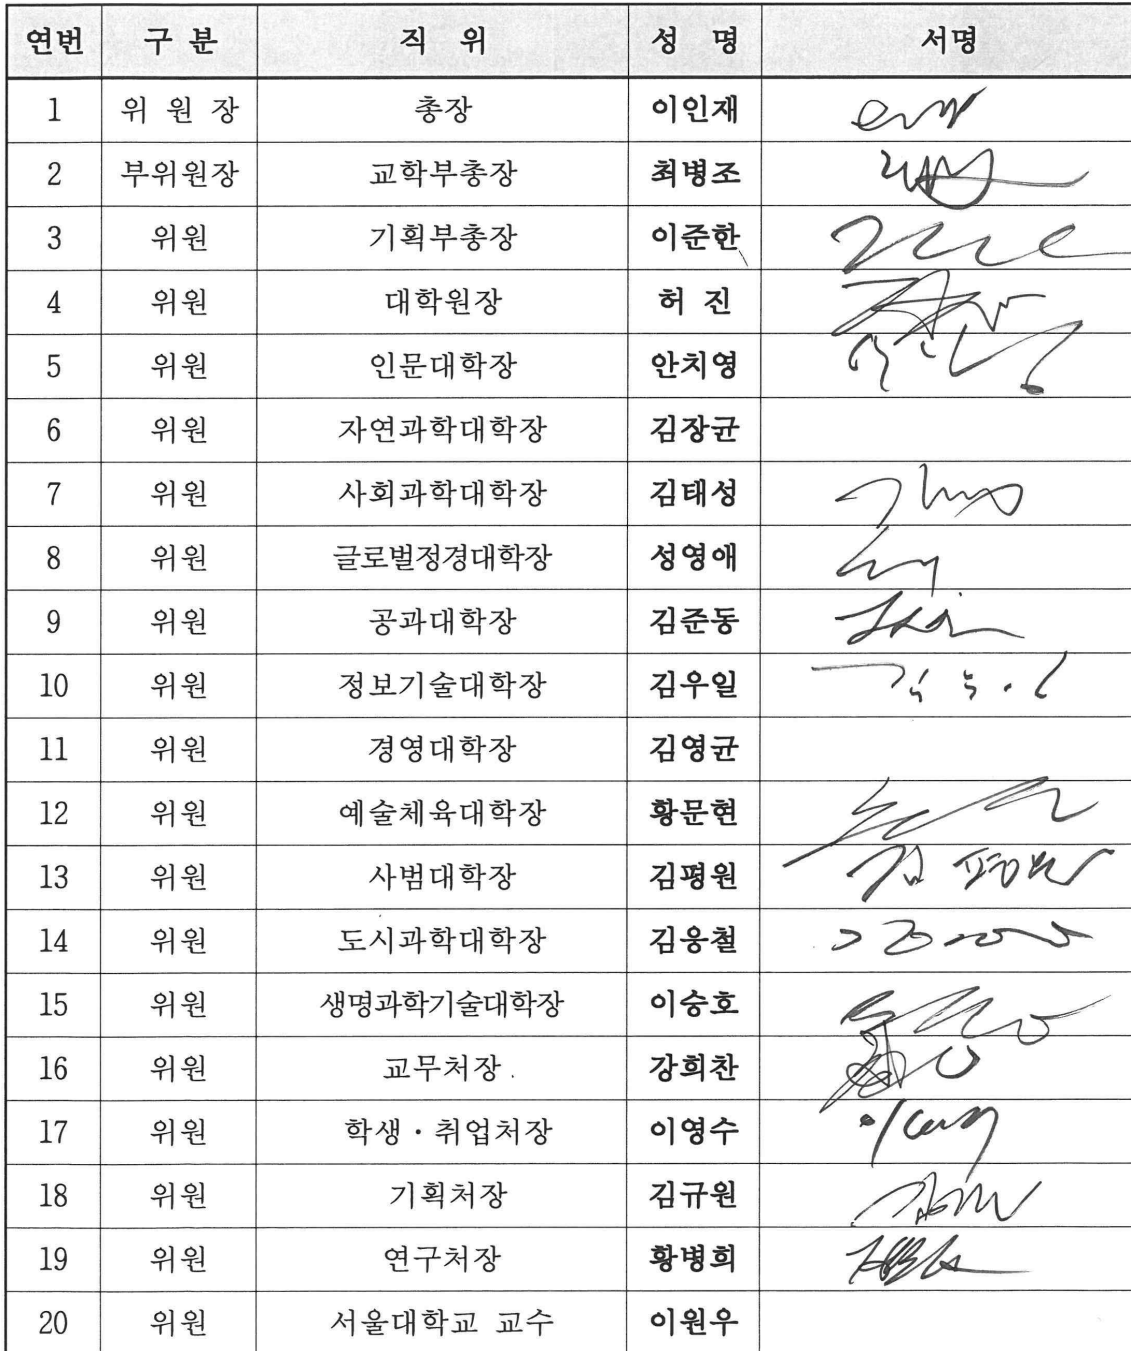 연번 구 분 직 위 성 명 서명
1 위 원 장 총장 이인재
2 부위원장 교학부총장 최병조
3 위원 기획부총장 이준한
4 위원 대학원장 허 진
5 위원 인문대학장 안치영
6 위원 자연과학대학장 김장균
7 위원 사회과학대학장 김태성
8 위원 글로벌정경대학장 성영애
9 위원 공과대학장 김준동
10 위원 정보기술대학장 김우일
11 위원 경영대학장 김영균
12 위원 예술체육대학장 황문현
13 위원 사범대학장 김평원 김평원
14 위원 도시과학대학장 김웅철
15 위원 생명과학기술대학장 이승호
16 위원 교무처장 강희찬
17 위원 학생·취업처장 이영수
18 위원 기획처장 김규원
19 위원 연구처장 황병희
20 위원 서울대학교 교수 이원우